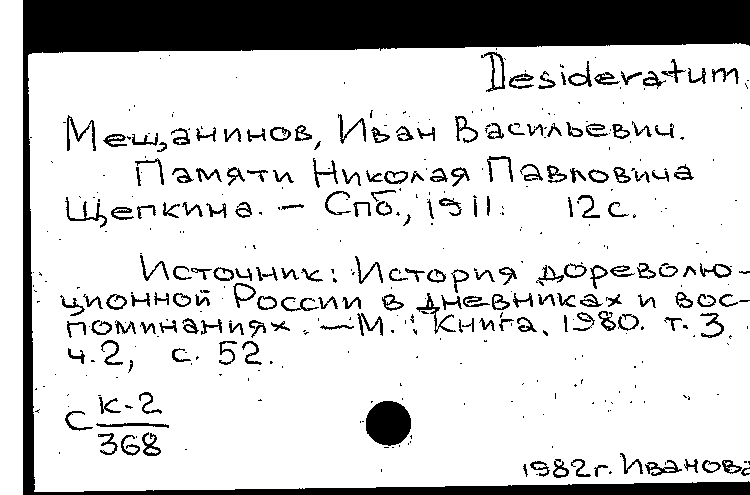 Desideratum
Мещанинов, Иван Васильевич.
Памяти Николая Павловича
Щепкина. – Спб., 1911. 12 с.
Источник: История дореволю-
ционной России в дневниках и вос-
поминаниях. – М.: Книга, 1980. т. 3
ч. 2, с. 52.
С К-2
368
1982 г. Иванова